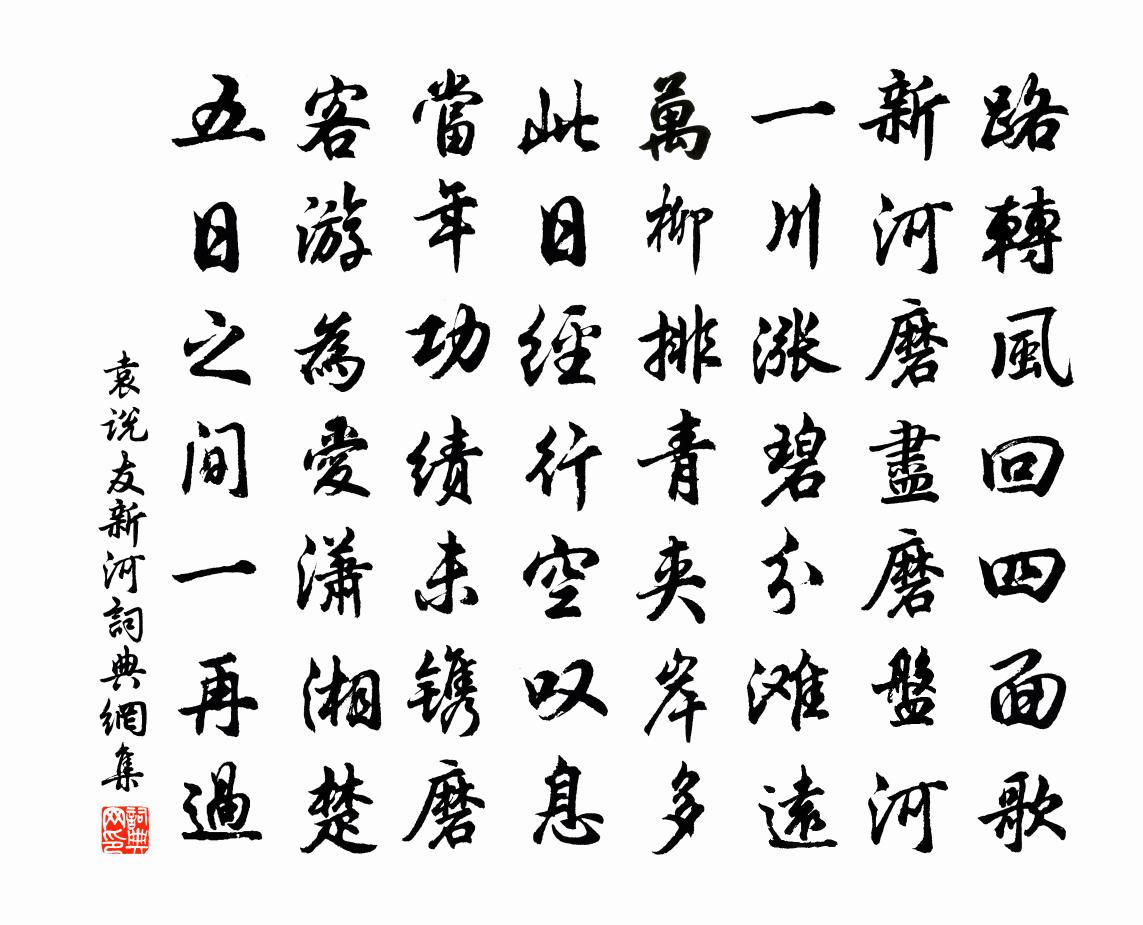 路轉風回四面歌
新河磨盡磨盤河
一川漲碧分滩遠
萬柳排青夾岸多
此日經行空叹息
當年功績未镌磨
客游為愛瀟湘楚
五日之间一再過
袁说友新河詞典網集
詞典网印